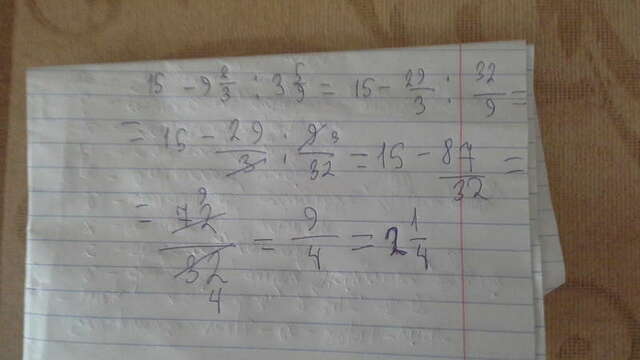 15 - 9 2/3 : 3 5/9 = 15 - 29/3 : 32/9 =
= 15 - 29/3 : 9/32 3 = 15 - 87/32 =
= 72/32 9 4 = 9/4 = 2 1/4